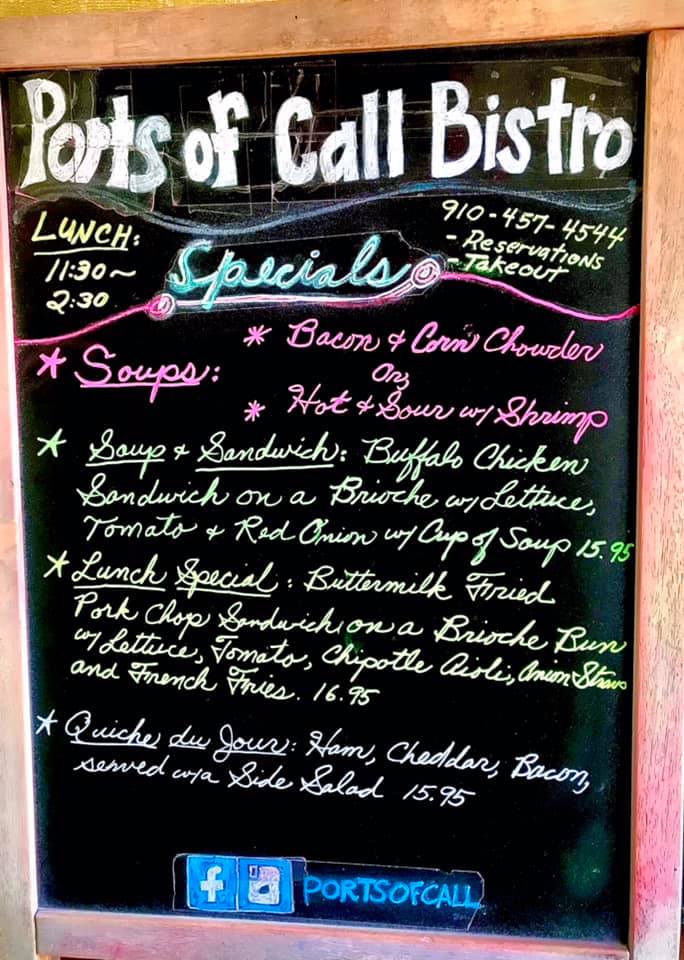 Ports of Call Bistro
LUNCH:
11:30~
2:30
Specials
910-457-4544
- Reservations
- Takeout
* Soups:
* Bacon & Corn Chowder
Or,
* Hot & Sour w/ Shrimp
* Soup & Sandwich: Buffalo Chicken
Sandwich on a Brioche w/ Lettuce,
Tomato & Red Onion w/ Cup of Soup 15.95
* Lunch Special: Buttermilk Fried
Pork Chop Sandwich on a Brioche Bun
w/ Lettuce, Tomato, Chipotle Aioli, Onion Straws
and French Fries. 16.95
* Quiche du Jour: Ham, Cheddar, Bacon,
served w/a Side Salad 15.95
f PORTSOFCALL